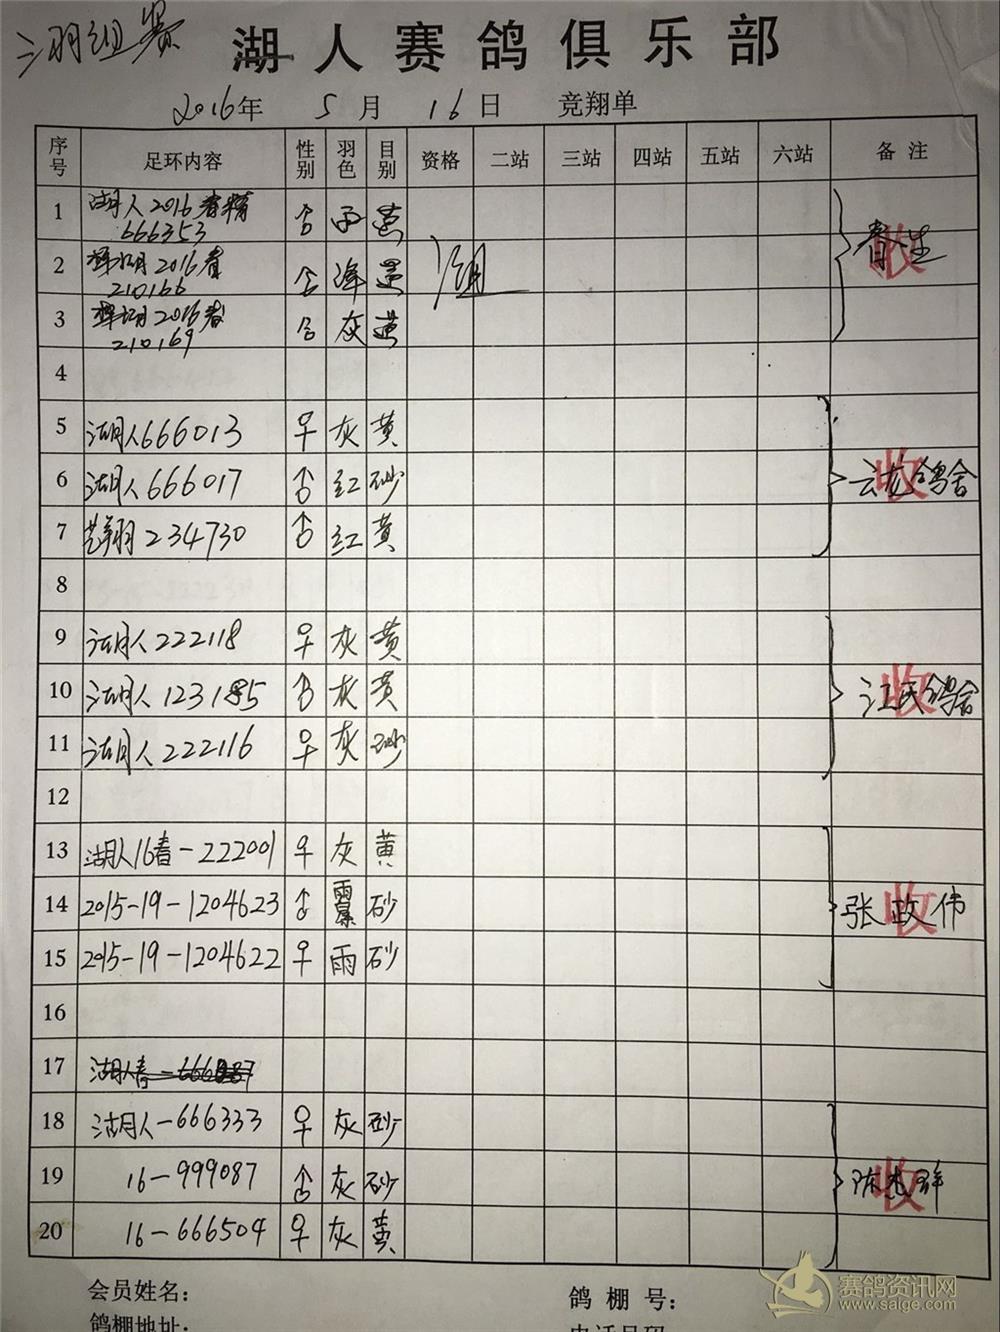 三羽组赛
湖人赛鸽俱乐部
2016年 5月 16日 竞翔单
序号 足环内容 性别 羽色 目别 资格 二站 三站 四站 五站 六站 备注
1 湖人2016春精 666353 ♂ 雨 黄
2 2016春 210166 ♂ 绛 黄 组
3 2016春 210169 ♂ 灰 黄
春生 收
4
5 湖人666013 ♀ 灰 黄
6 湖人666017 ♂ 红 砂
云龙鸽舍 收
7 艺翔234730 ♂ 红 黄
8
9 湖人222118 ♀ 灰 黄
10 湖人123185 ♂ 灰 黄
江氏鸽舍 收
11 湖人222116 ♀ 灰 砂
12
13 湖人16春-222001 ♀ 灰 黄
14 2015-19-1204623 ♂ 砂
张政伟 收
15 2015-19-1204622 ♀ 雨 砂
16
17 湖人春
18 湖人-666333 ♀ 灰 砂
19 16-999087 ♂ 灰 砂
陈杰群 收
20 16-666504 ♀ 灰 黄
会员姓名： 鸽棚号：
鸽棚地址： 电话号码
赛鸽资讯网
www.saige.com